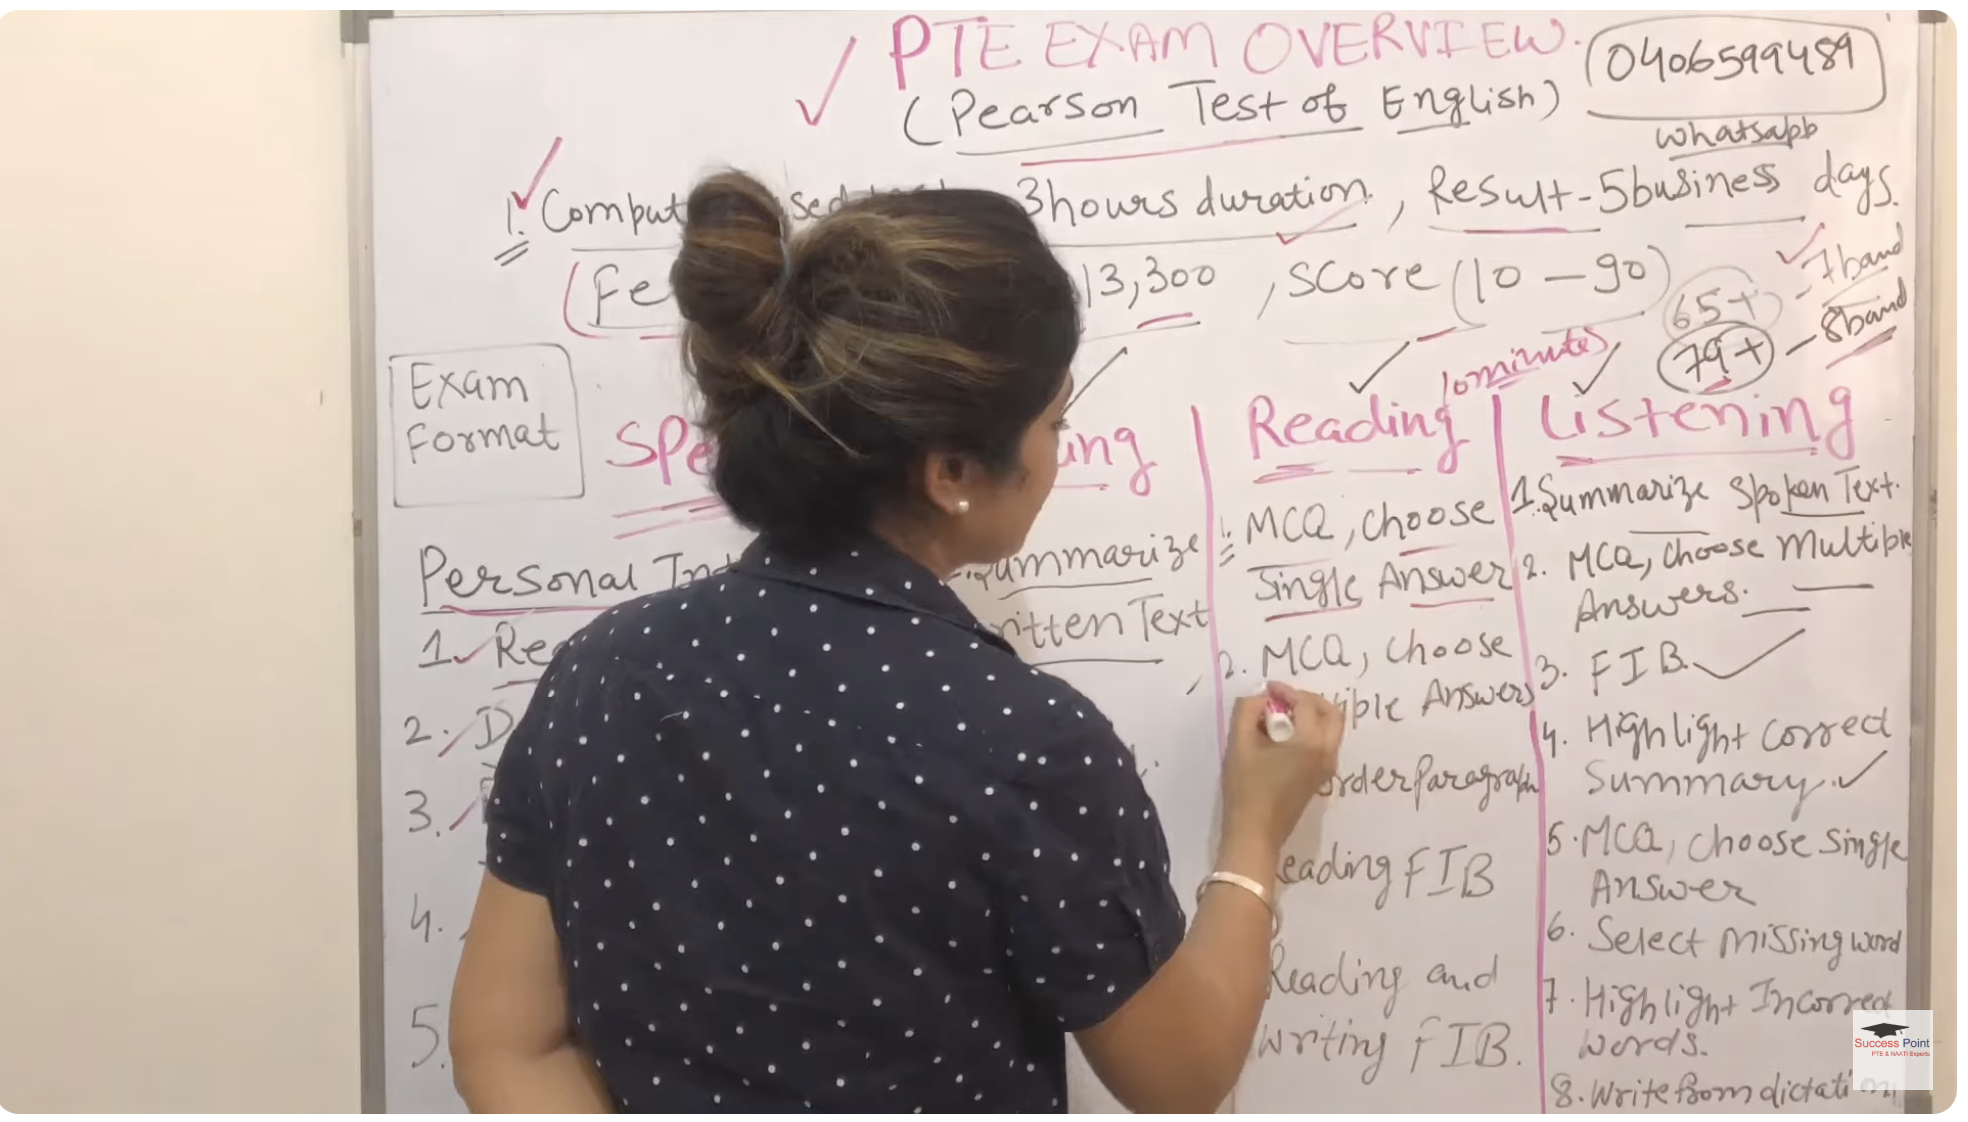 PTE EXAM OVERVIEW.
(Pearson Test of English)
0406599489
whatsapp
1. 3hours duration, Result-5business days.
13,300, score (10 - 90)
65+ - 7band
79+ - 8band
Exam
Format
Reading
10minutes
Listening
Personal
1.
2.
3.
4.
5.
Summarize
Written Text
1. MCQ, choose
Single Answer
2. MCQ, choose
Answers
Paragraph
Reading FIB
Reading and
Writing FIB.
1. Summarize Spoken Text.
2. MCQ, choose Multiple
Answers.
3. FIB
4. Highlight correct
Summary.
5. MCQ, choose single
Answer
6. Select missing word
7. Highlight Incorrect
words.
8. Write from dictation
Success Point
PTE & NAATI Experts